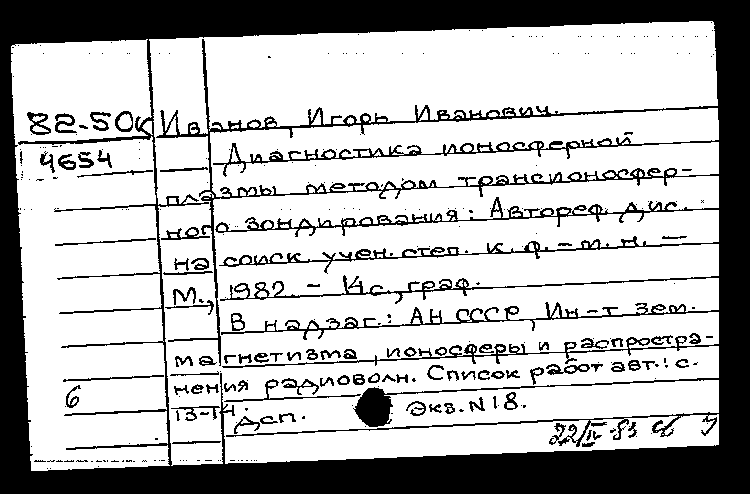 82-50к Иванов, Игорь Иванович.
4654 Диагностика ионосферной
плазмы методом трансионосфер-
ного зондирования: Автореф. дис.
на соиск. учен. степ. к. ф.-м. н. —
М., 1982. - 14 с., граф.
В надзаг.: АН СССР, Ин-т Зем.
магнетизма, ионосферы и распростра-
6 нения радиоволн. Список работ авт.: с.
13-14.
Дсп. Экз. N 18.
22/IV-83